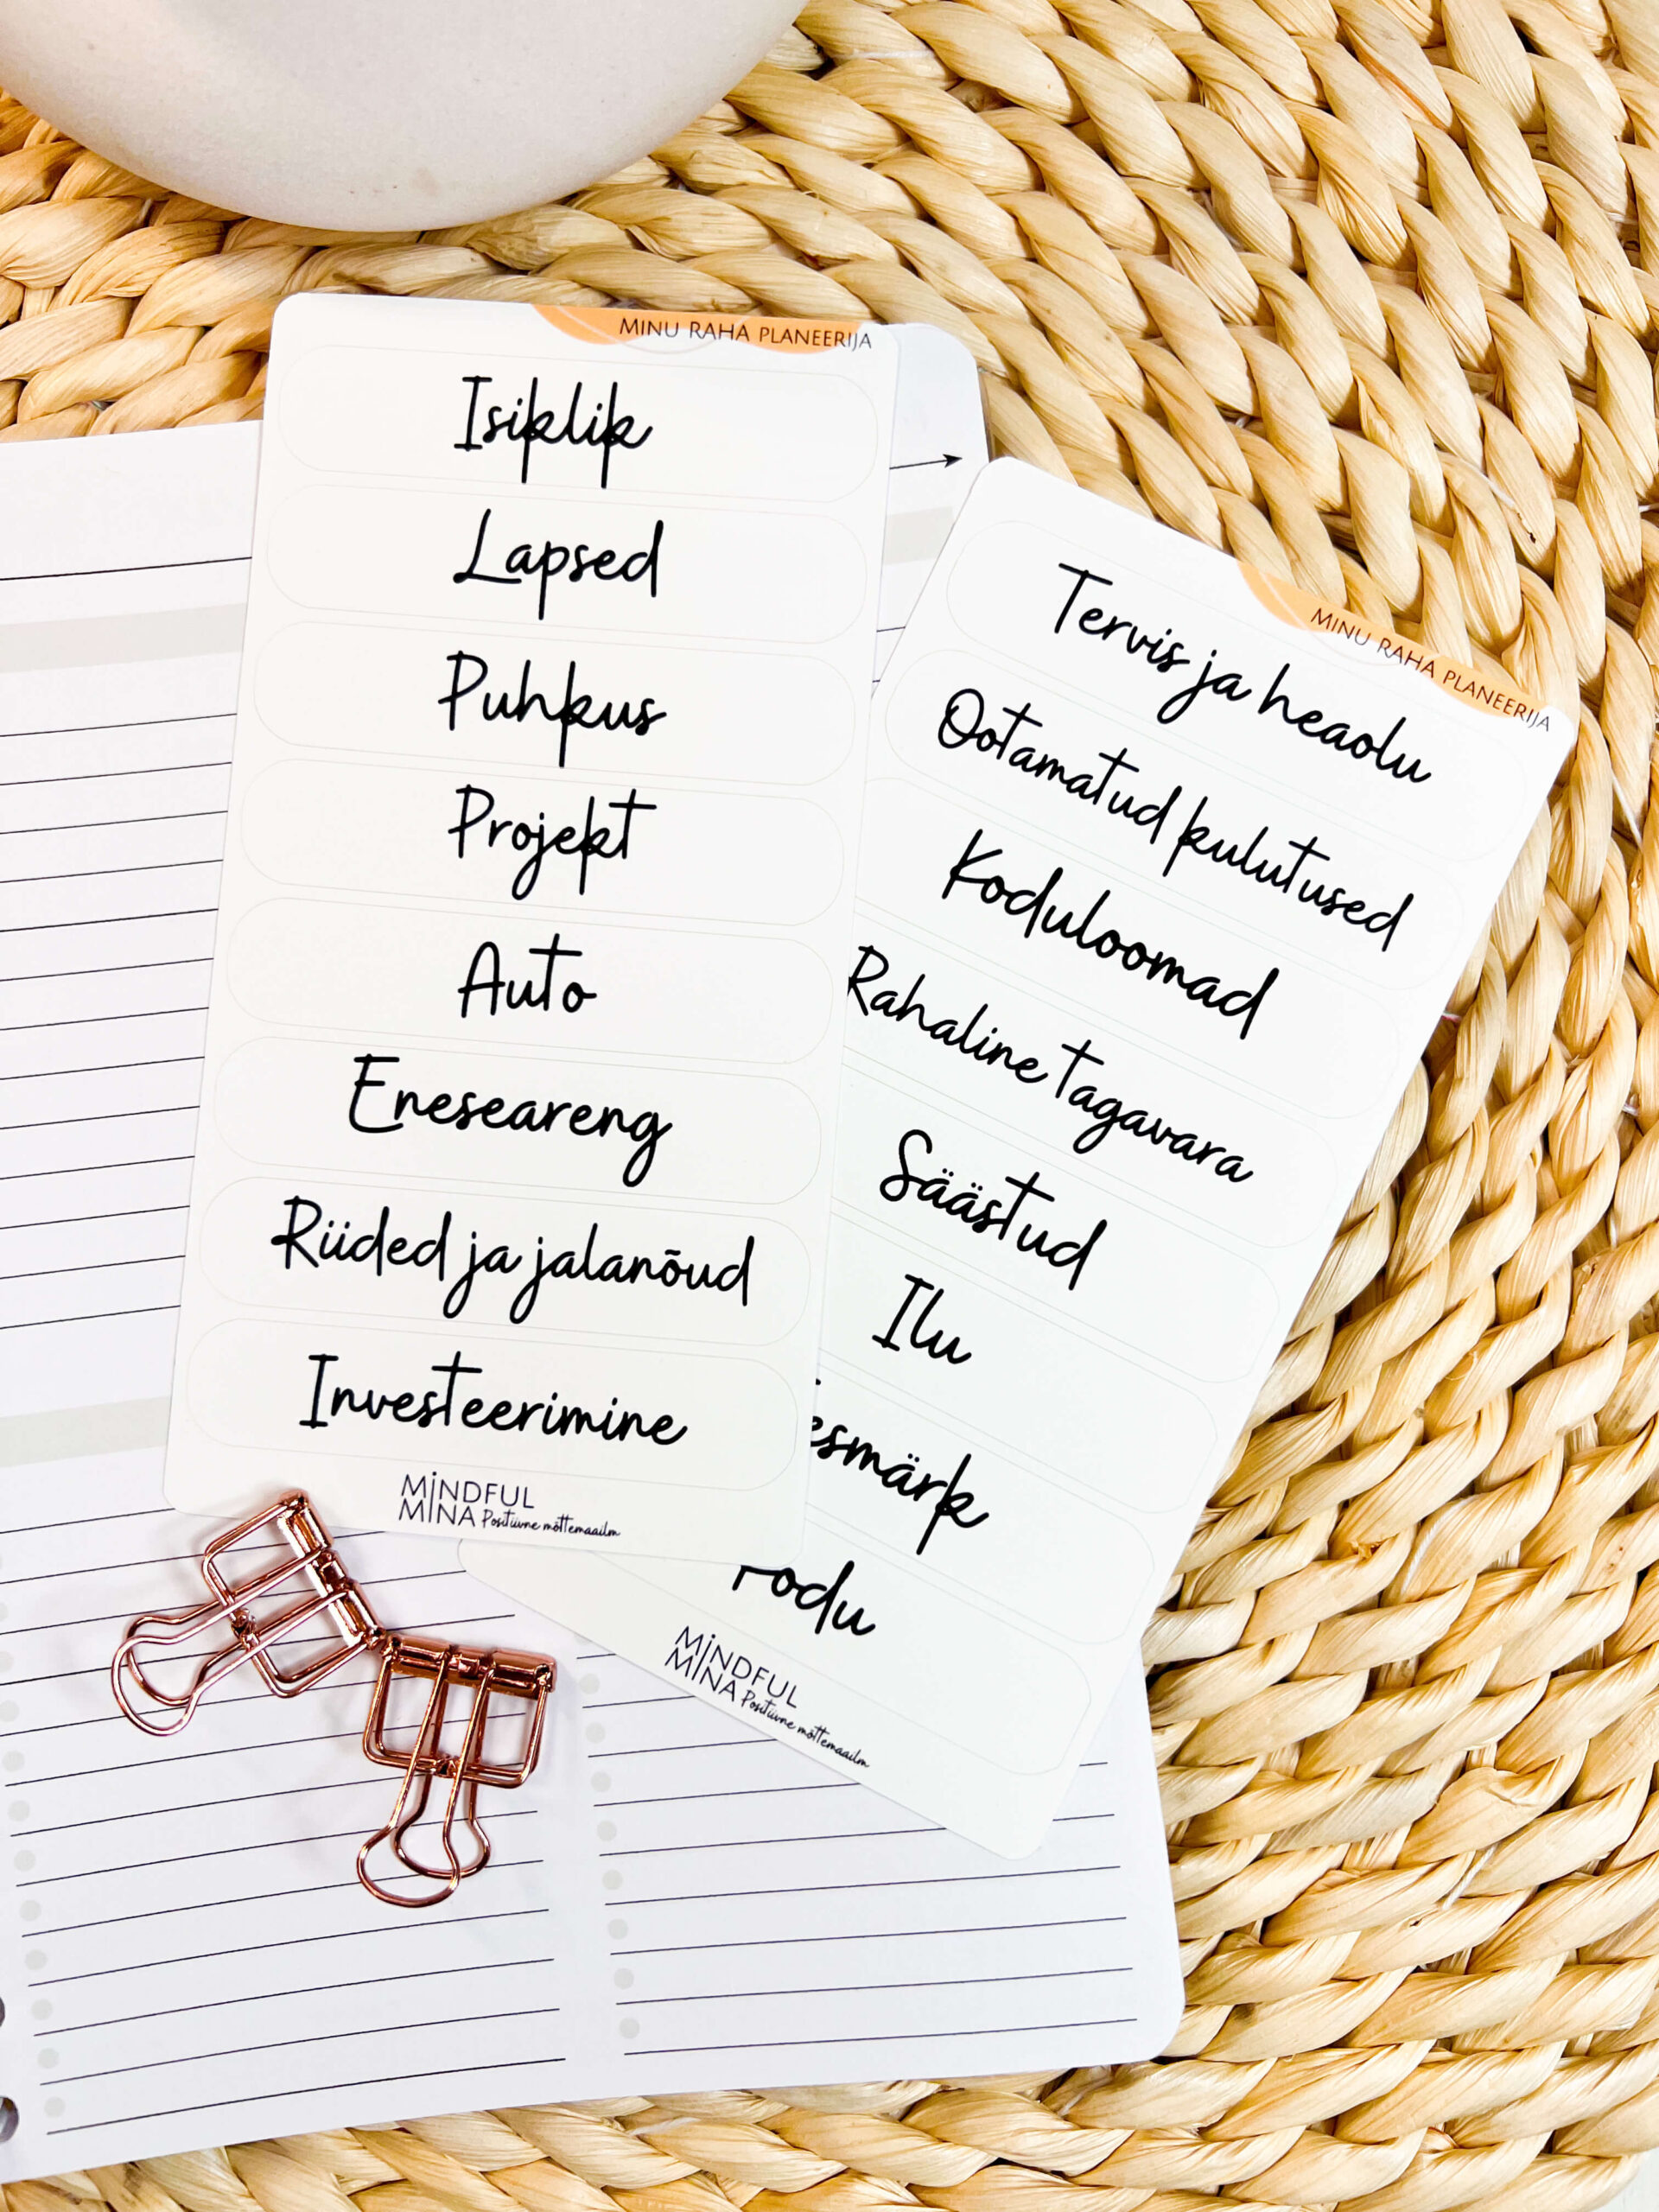 MINU RAHA PLANEERIJA
Isiklik
Lapsed
Puhkus
Projekt
Auto
Eneseareng
Riided ja jalanõud
Investeerimine
MINDFUL
MINA Positiivne mõttemaailm
MINU RAHA PLANEERIJA
Tervis ja heaolu
Ootamatud kulutused
Koduloomad
Rahaline tagavara
Säästud
Ilu
esmärk
odu
MINDFUL
MINA Positiivne mõttemaailm